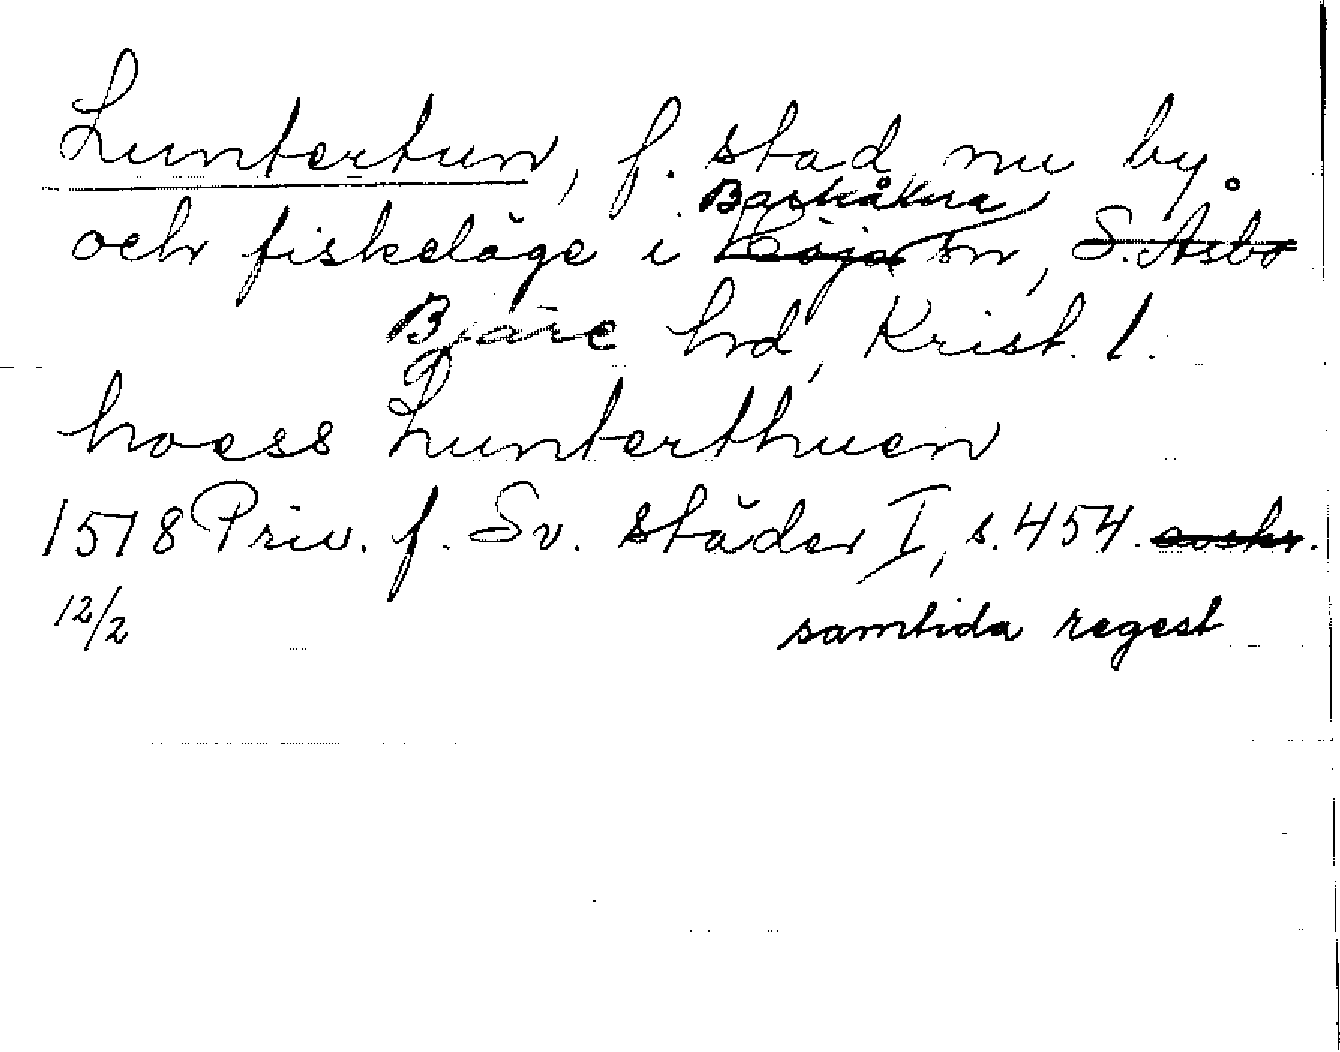 Luntertun, f. stad, nu by
Barkåkra
och fiskeläge i Höja sn, S. Åsbo
Bjäre hd, Krist. l.
hoess Lunterthuen
1578 Priv. f. Sv. städer I, s. 454. avskr.
12/2 samtida regest